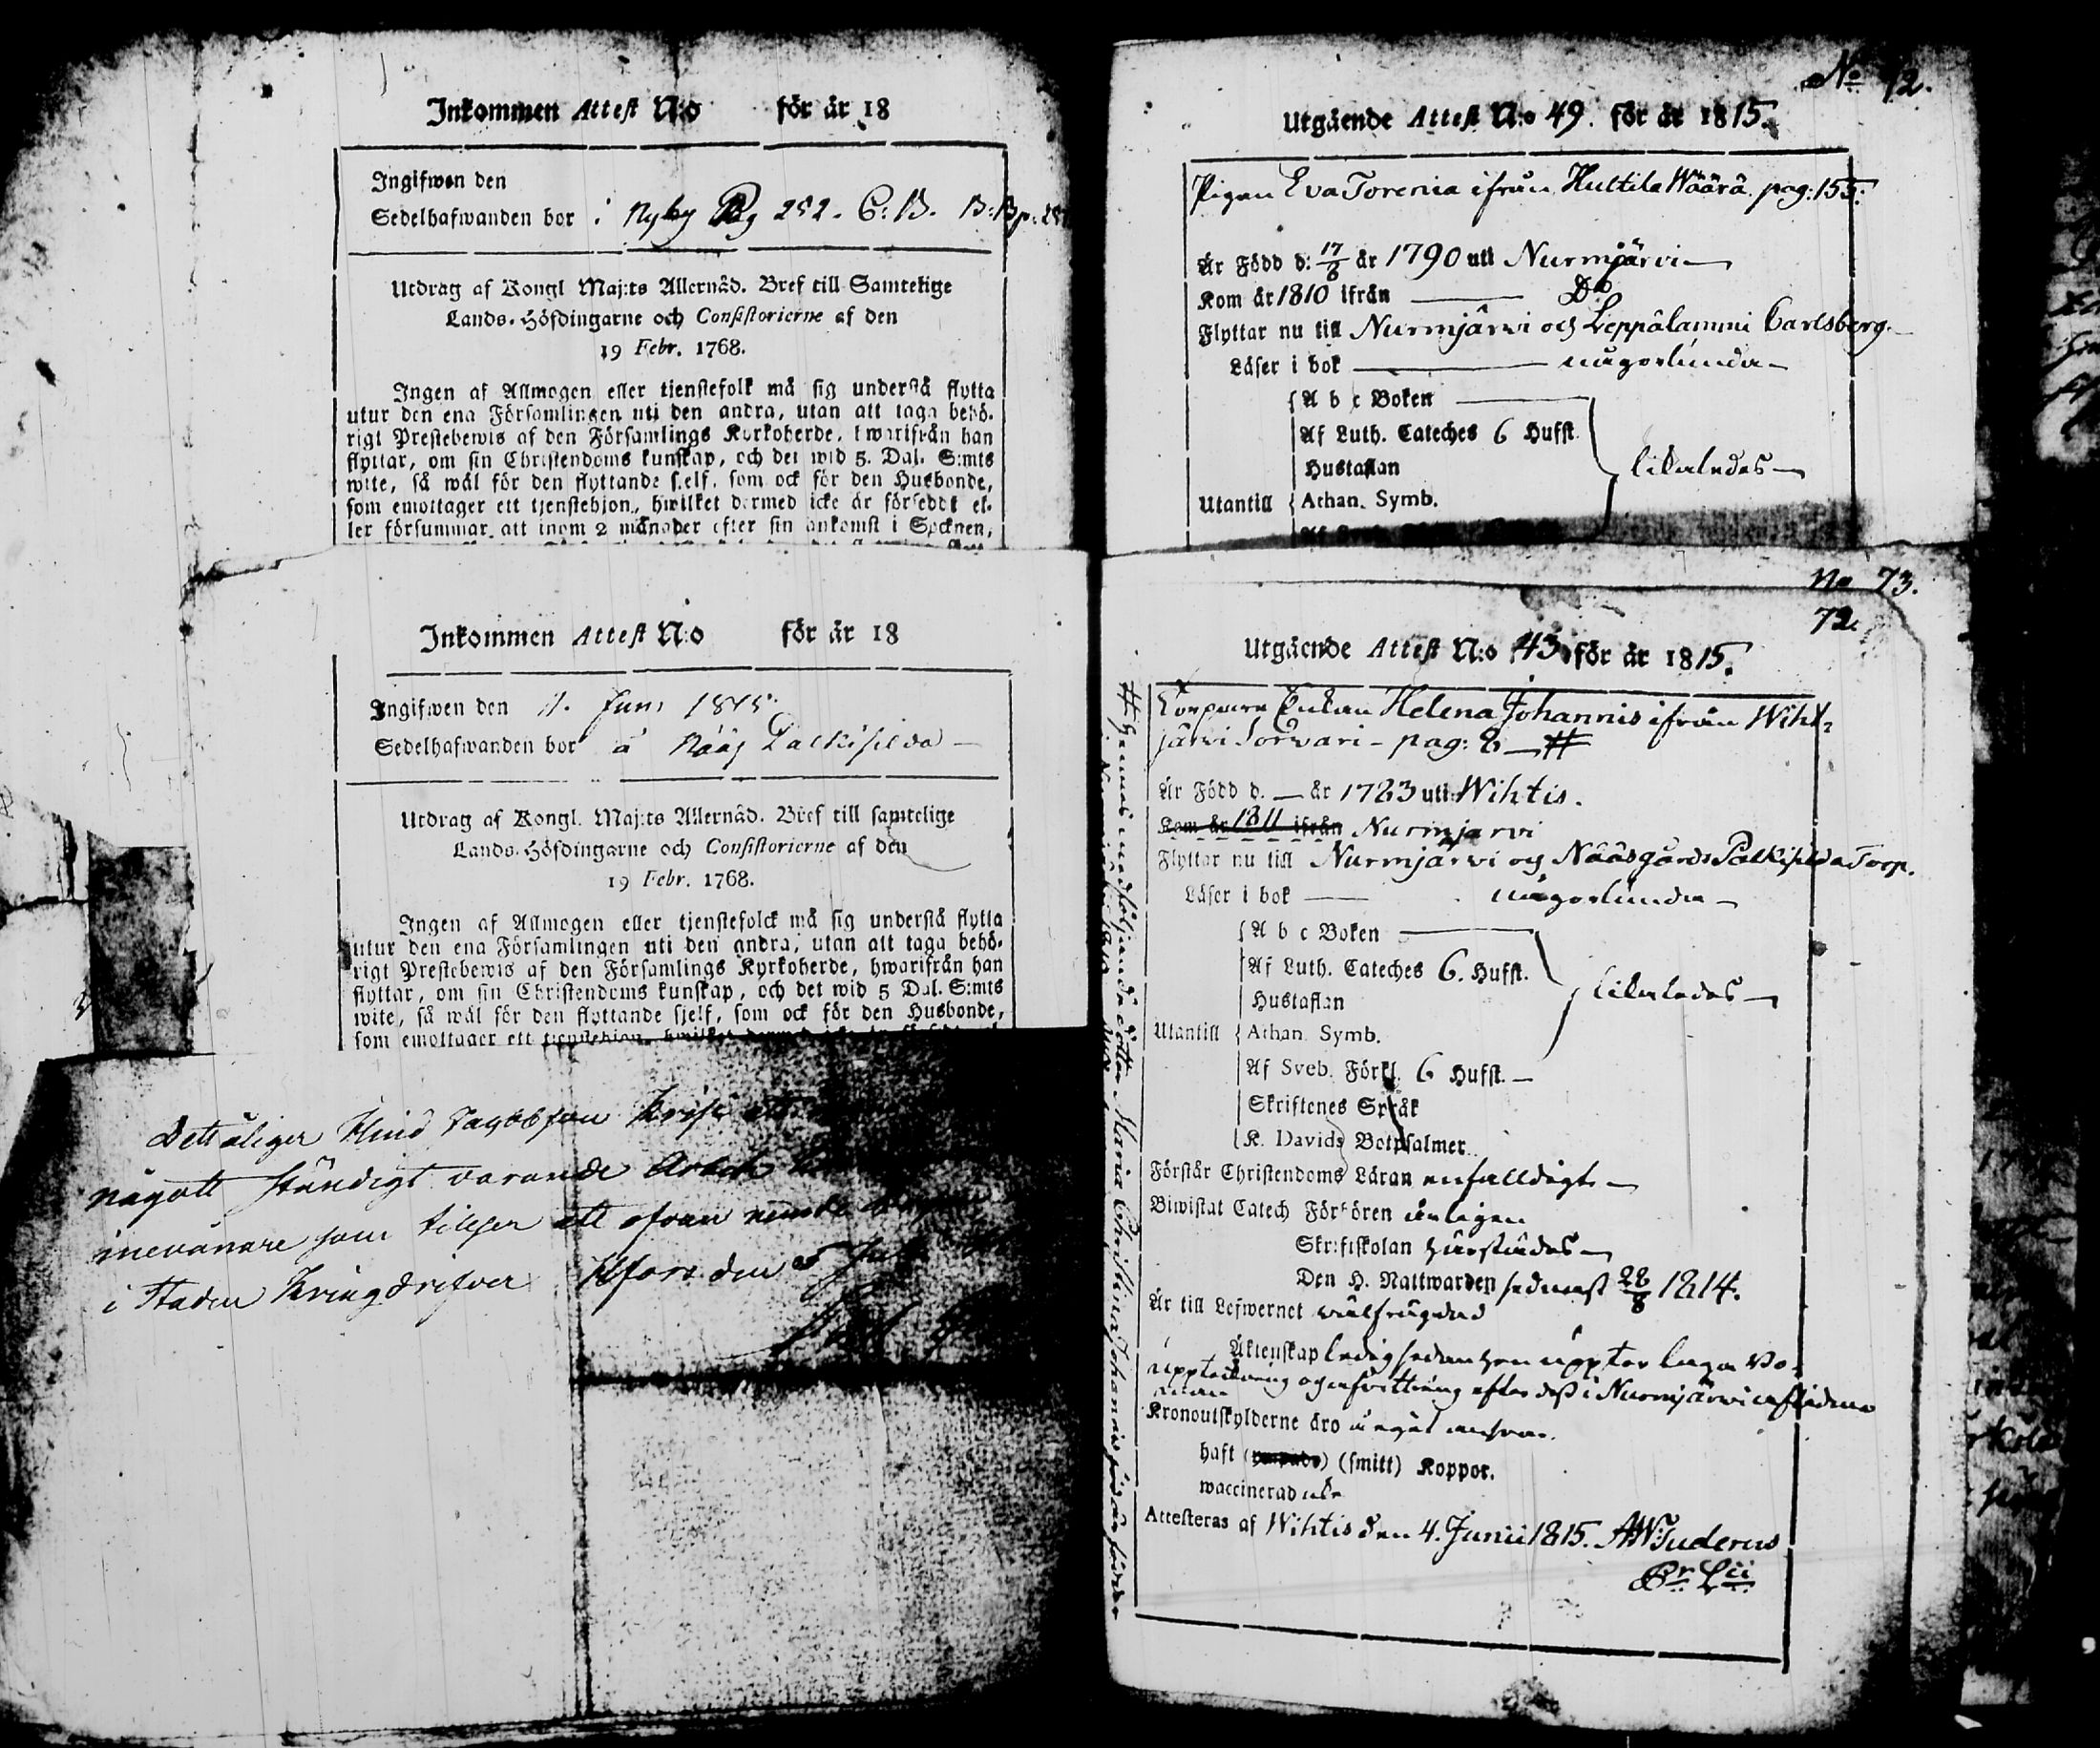 Inkommen Attest N:o för år 18
Ingifwen den
Sedelhafwanden bor i Nyby Pag 252. C: B. B: B p: 287
Utdrag af Kongl Maj:ts Allernåd. Bref till Samtelige
Lands-Höfdingarne och Consistorierne af den
19 Febr. 1768.
Ingen af Allmogen eller tjenstefolk må sig understå flytta
utur den ena Församlingen uti den andra, utan att taga behö-
rigt Prestebewis af den Församlings Kyrkoherde, hwarifrån han
flyttar, om sin Christendoms kunskap, och det wid 5. Dal. S:mts
wite, så wäl för den flyttande sjelf, som ock för den Husbonde,
som emottager ett tjenstehjon, hwilket dermed icke är förseddt el-
ler försummar, att inom 2 månader efter sin ankomst i Socknen,
Inkommen Attest N:o för år 18
Ingifwen den 11. Juni 1815.
Sedelhafwanden bor å Nääs Palkisilda
Utdrag af Kongl. Maj:ts Allernåd. Bref till samtelige
Lands-Höfdingarne och Consistorierne af den
19 Febr. 1768.
Ingen af Allmogen eller tjenstefolck må sig understå flytta
utur den ena Församlingen uti den andra, utan att taga behö-
rigt Prestebewis af den Församlings Kyrkoherde, hwarifrån han
flyttar, om sin Christendoms kunskap, och det wid 5 Dal. S:mts
wite, så wäl för den flyttande sjelf, som ock för den Husbonde,
som emottager ett tjenstehjon, hwilket dermed icke är
något ständigt varande
inevånare som
i Staden Kringdrifver Hfors den 5 Juli
No 72.
Utgående Attest N:o 49. för år 1815.
Pigan Eva Torenia ifrån Huttila Wäärä. pag: 155.
Är Född d: 17/6 år 1790 uti Nurmjärvi
Kom år 1810 ifrån Do
Flyttar nu till Nurmjärwi och Leppälammi Carlsberg.
Läser i bok någorlunda
A b c Boken
Af Luth. Cateches 6 Hufst.
Hustaflan likaledes
Utantill Athan. Symb.
No 73.
72.
Utgående Attest N:o 43 för år 1815.
Enkan Helena Johannis ifrån Wiht-
järvi Sorvari - pag: 8 #
Är Född d. — år 1783 uti Wihtis.
Kom år 1811 ifrån Nurmjärvi
Flyttar nu till Nurmjärwi och Nääsgårds Palkisilda Torp.
Läser i bok någorlunda
A b c Boken
Af Luth. Cateches 6. Hufst.
Hustaflan likaledes
Utantill Athan. Symb.
Af Sveb. Förkl. 6 Hufst.
Skriftenes Språk
K. Davids Botpsalmer
Förstår Christendoms Läran enfalldigt
Biwistat Catech Förhören årligen
Skriftskolan härstädes
Den H. Nattwarden sednast 28/8 1814.
Är till Lefwernet wälfrägdad
Äktenskap ledig sedan hon uppter laga Bo-
uppteckning och afvittring efter dess i Nurmjärvi aflidne
man
Kronoutskylderne äro å eget answar.
haft (smitt) Koppor.
waccinerad
Attesteras af Wihtis den 4. Junii 1815. AW Tuderus
# hennes medföljande dotter Maria Christina Johannis